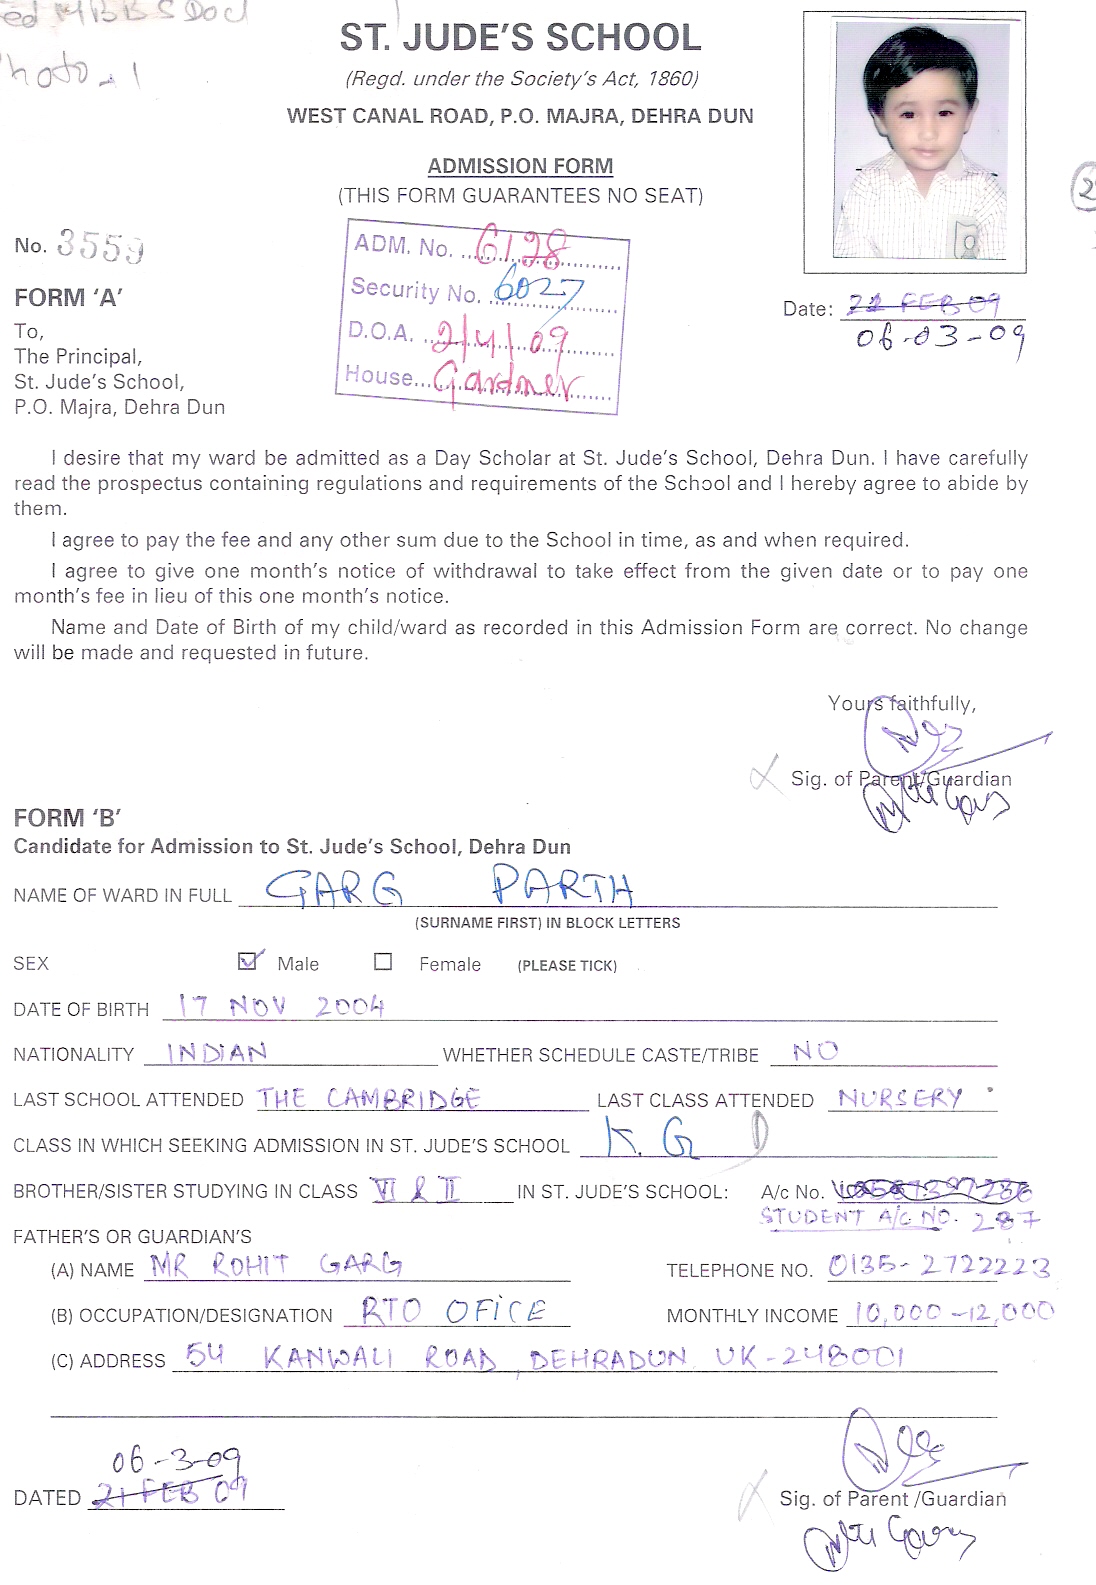 ed MBBS Docl
hoto - 1
ST. JUDE'S SCHOOL
(Regd. under the Society's Act, 1860)
WEST CANAL ROAD, P.O. MAJRA, DEHRA DUN
ADMISSION FORM
(THIS FORM GUARANTEES NO SEAT)
No. 3559
ADM. No. 6128
Security No. 6027
D.O.A. 2/4/09
House Gardner
Date: 21 FEB 09
06-03-09
FORM 'A'
To,
The Principal,
St. Jude's School,
P.O. Majra, Dehra Dun
I desire that my ward be admitted as a Day Scholar at St. Jude's School, Dehra Dun. I have carefully
read the prospectus containing regulations and requirements of the School and I hereby agree to abide by
them.
I agree to pay the fee and any other sum due to the School in time, as and when required.
I agree to give one month's notice of withdrawal to take effect from the given date or to pay one
month's fee in lieu of this one month's notice.
Name and Date of Birth of my child/ward as recorded in this Admission Form are correct. No change
will be made and requested in future.
Yours faithfully,
Sig. of Parent/Guardian
FORM 'B'
Candidate for Admission to St. Jude's School, Dehra Dun
NAME OF WARD IN FULL GARG PARTH
(SURNAME FIRST) IN BLOCK LETTERS
SEX Male Female (PLEASE TICK)
DATE OF BIRTH 17 NOV 2004
NATIONALITY INDIAN WHETHER SCHEDULE CASTE/TRIBE NO
LAST SCHOOL ATTENDED THE CAMBRIDGE LAST CLASS ATTENDED NURSERY
CLASS IN WHICH SEEKING ADMISSION IN ST. JUDE'S SCHOOL K.G
BROTHER/SISTER STUDYING IN CLASS VI & II IN ST. JUDE'S SCHOOL: A/c No.
STUDENT A/C NO. 287
FATHER'S OR GUARDIAN'S
(A) NAME MR ROHIT GARG TELEPHONE NO. 0135-2722223
(B) OCCUPATION/DESIGNATION RTO OFICE MONTHLY INCOME 10,000-12,000
(C) ADDRESS 54 KANWALI ROAD, DEHRADUN UK-248001
06-3-09
DATED 21 FEB 09
Sig. of Parent /Guardian